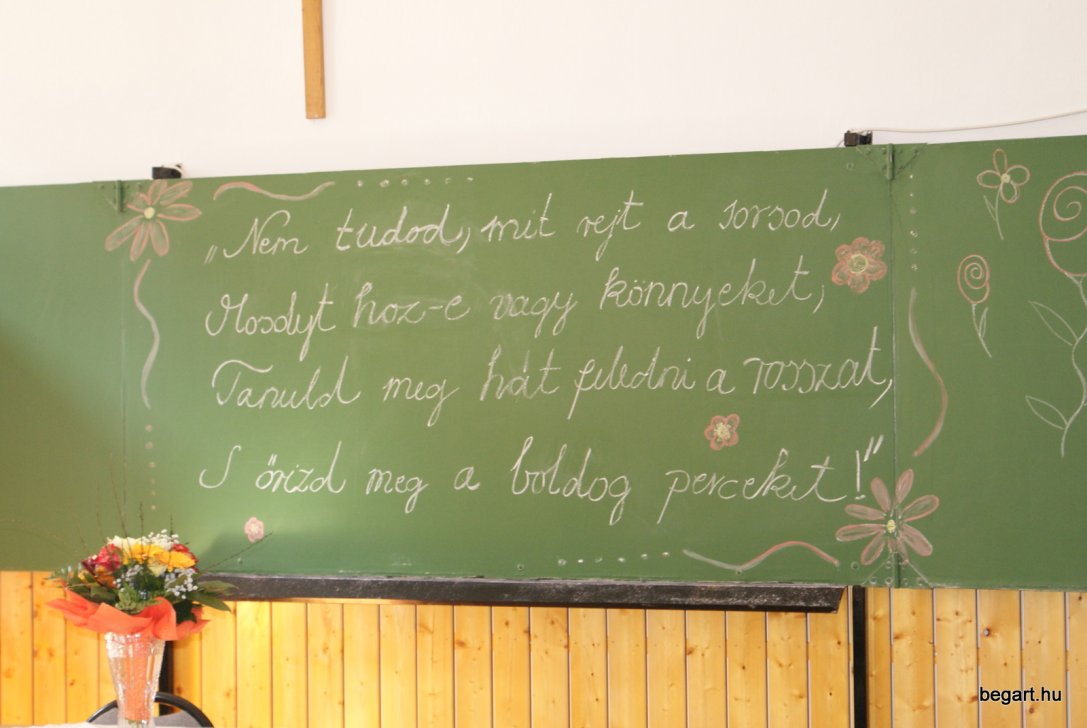 „Nem tudod, mit rejt a sorsod,
Mosolyt hoz-e vagy könnyeket,
Tanuld meg hát feledni a rosszat,
S őrizd meg a boldog perceket!”
begart.hu